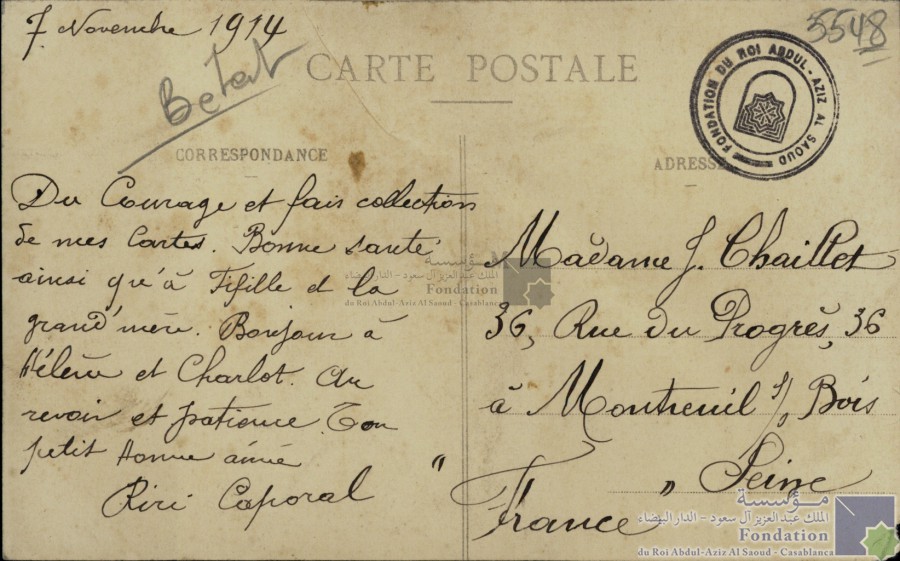 7 Novembre 1914
5548
CARTE POSTALE
FONDATION DU ROI ABDUL-AZIZ AL SAOUD
CORRESPONDANCE
ADRESSE
Du Courage et fais collection
de mes Cartes. Bonne santé
ainsi qu'à Fifille et la
grand'mère. Bonjour à
Hélène et Charlot. Au
revoir et patience. Ton
petit Homme aimé
Riri Caporal
Madame J. Chaillet
36, Rue du Progrès, 36
à Montreuil s/s Bois
" Seine "
France
مؤسسة
الملك عبد العزيز آل سعود - الدار البيضاء
Fondation
du Roi Abdul-Aziz Al Saoud - Casablanca
مؤسسة
الملك عبد العزيز آل سعود - الدار البيضاء
Fondation
du Roi Abdul-Aziz Al Saoud - Casablanca